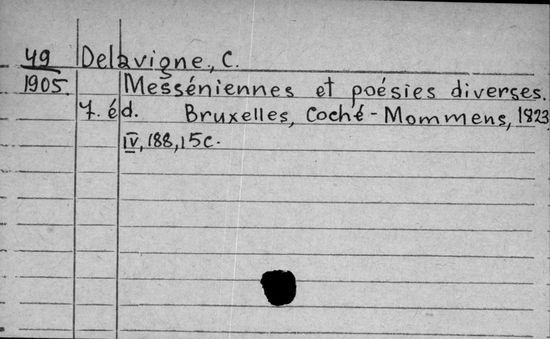 49 Delavigne, C.
1905. Messéniennes et poésies diverses.
7. éd. Bruxelles, Coché-Mommens, 1823
IV, 188, 15 c.